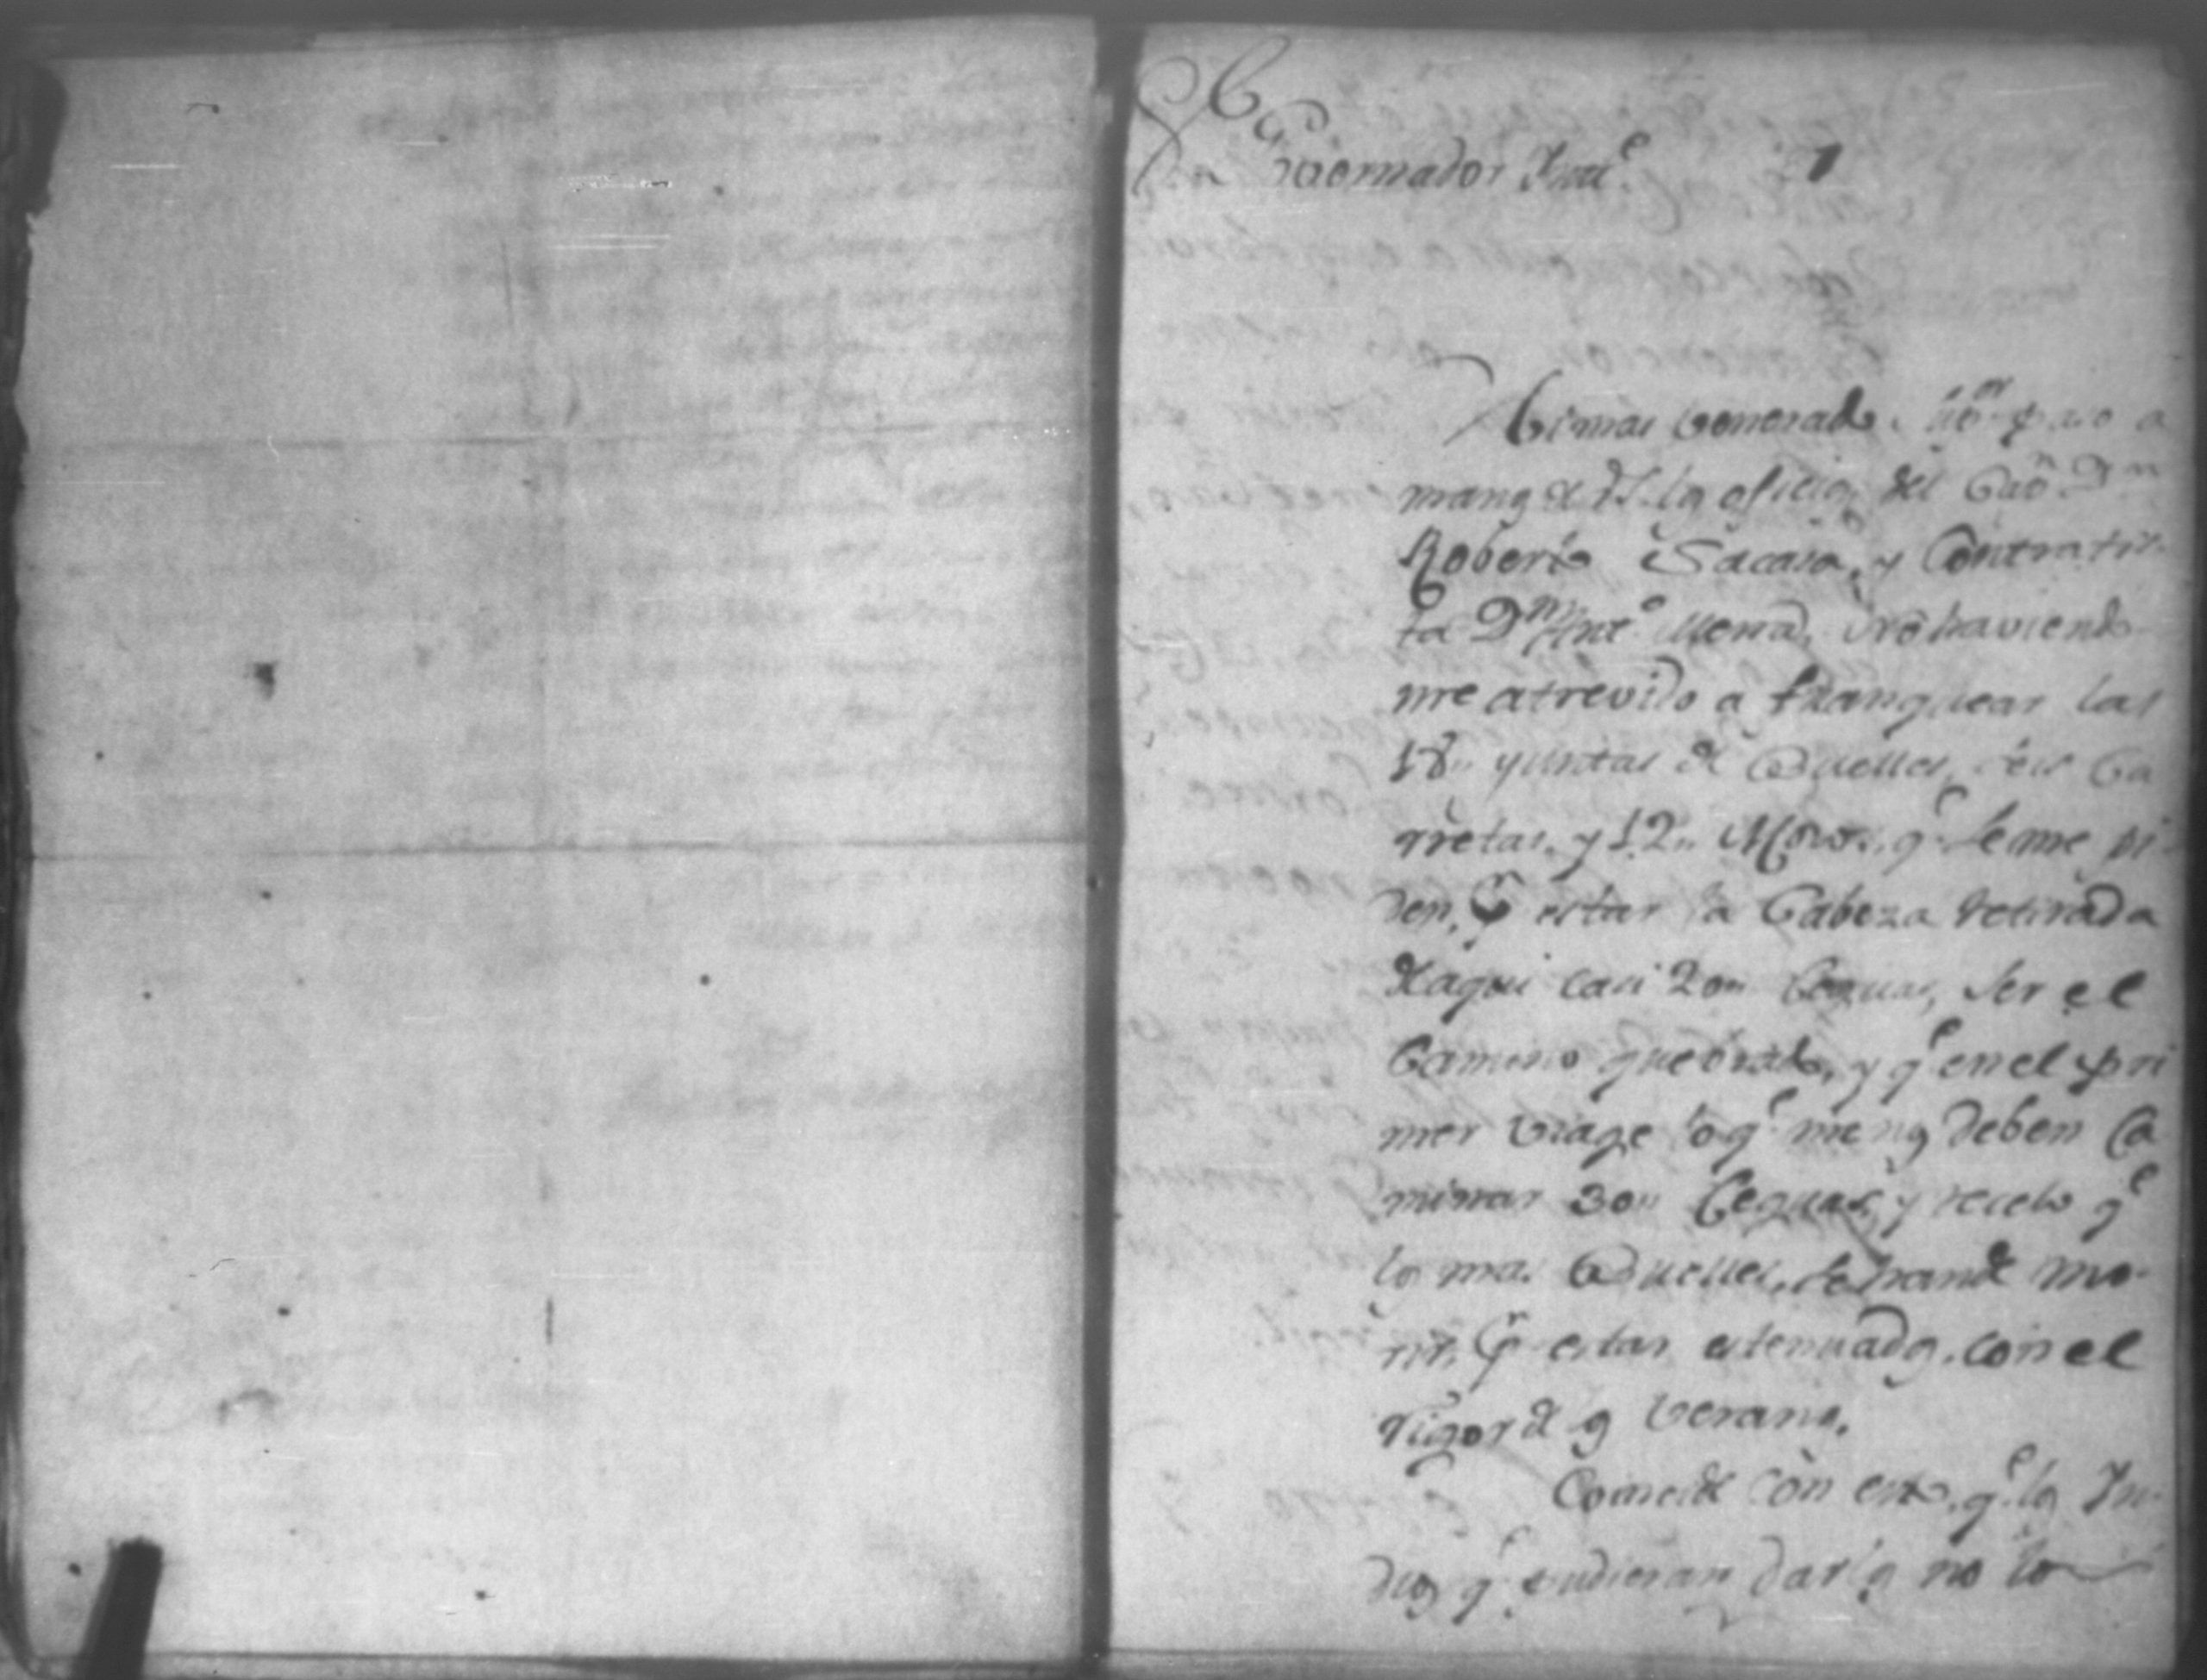 Governador Inte
1
Mi mas venerado Sor paso a
manos de VS. los oficios del Cavo Dn
Roberto Sacasa, y Contratis-
ta Dn Anto Mena, no haviendo
me atrevido a franquear las
18,, yuntas de Bueyes, seis Ca
rretas, y 12,, Mosos, qe se me pi
den, Pr estar la Cabeza retirada
de aqui casi 20,, Leguas, ser el
Camino quebrado, y qe en el pri
mer viage lo qe menos deben Ca
minar 30,, Leguas, y recelo qe
los mas Bueyes, se han de mo-
rir, Pr estar estenuados, con el
rigor de los Veranos.
Coincide con esto, qe los In-
dios qe pudieran darlos no lo